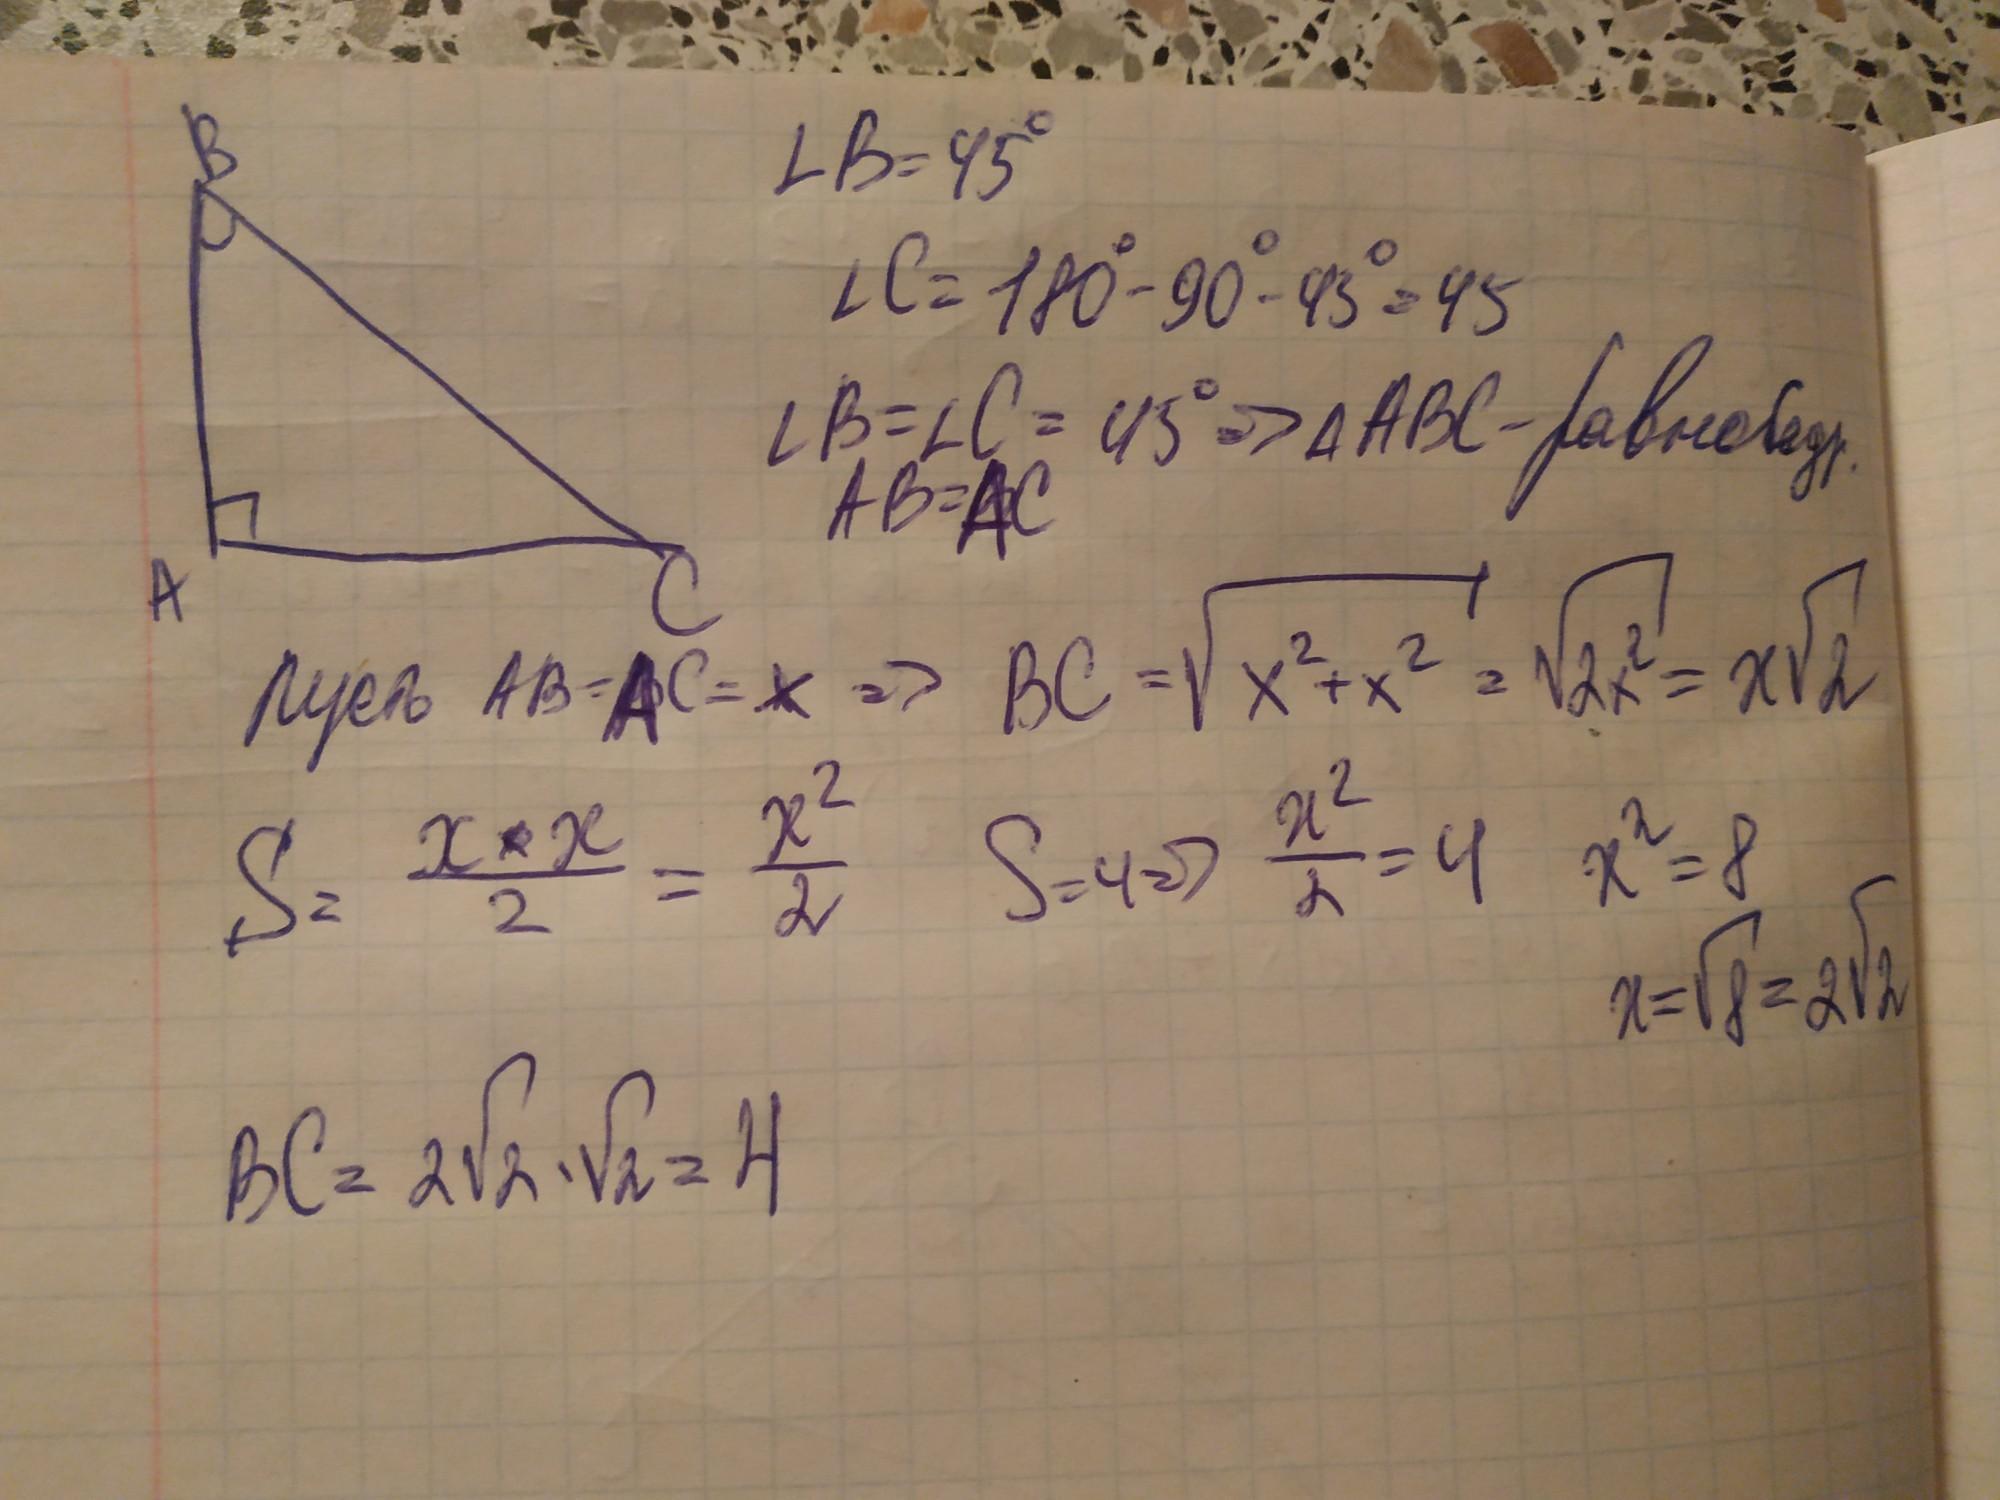 B
A
C
∠B=45°
∠C=180°-90°-45°=45
∠B=∠C=45°=>∆ABC-равнобедр.
AB=AC
пусть AB=AC=x => BC=√(x²+x²)=√(2x²)=x√2
S=(x•x)/2=x²/2 S=4=> x²/2=4 x²=8
x=√8=2√2
BC=2√2·√2=4